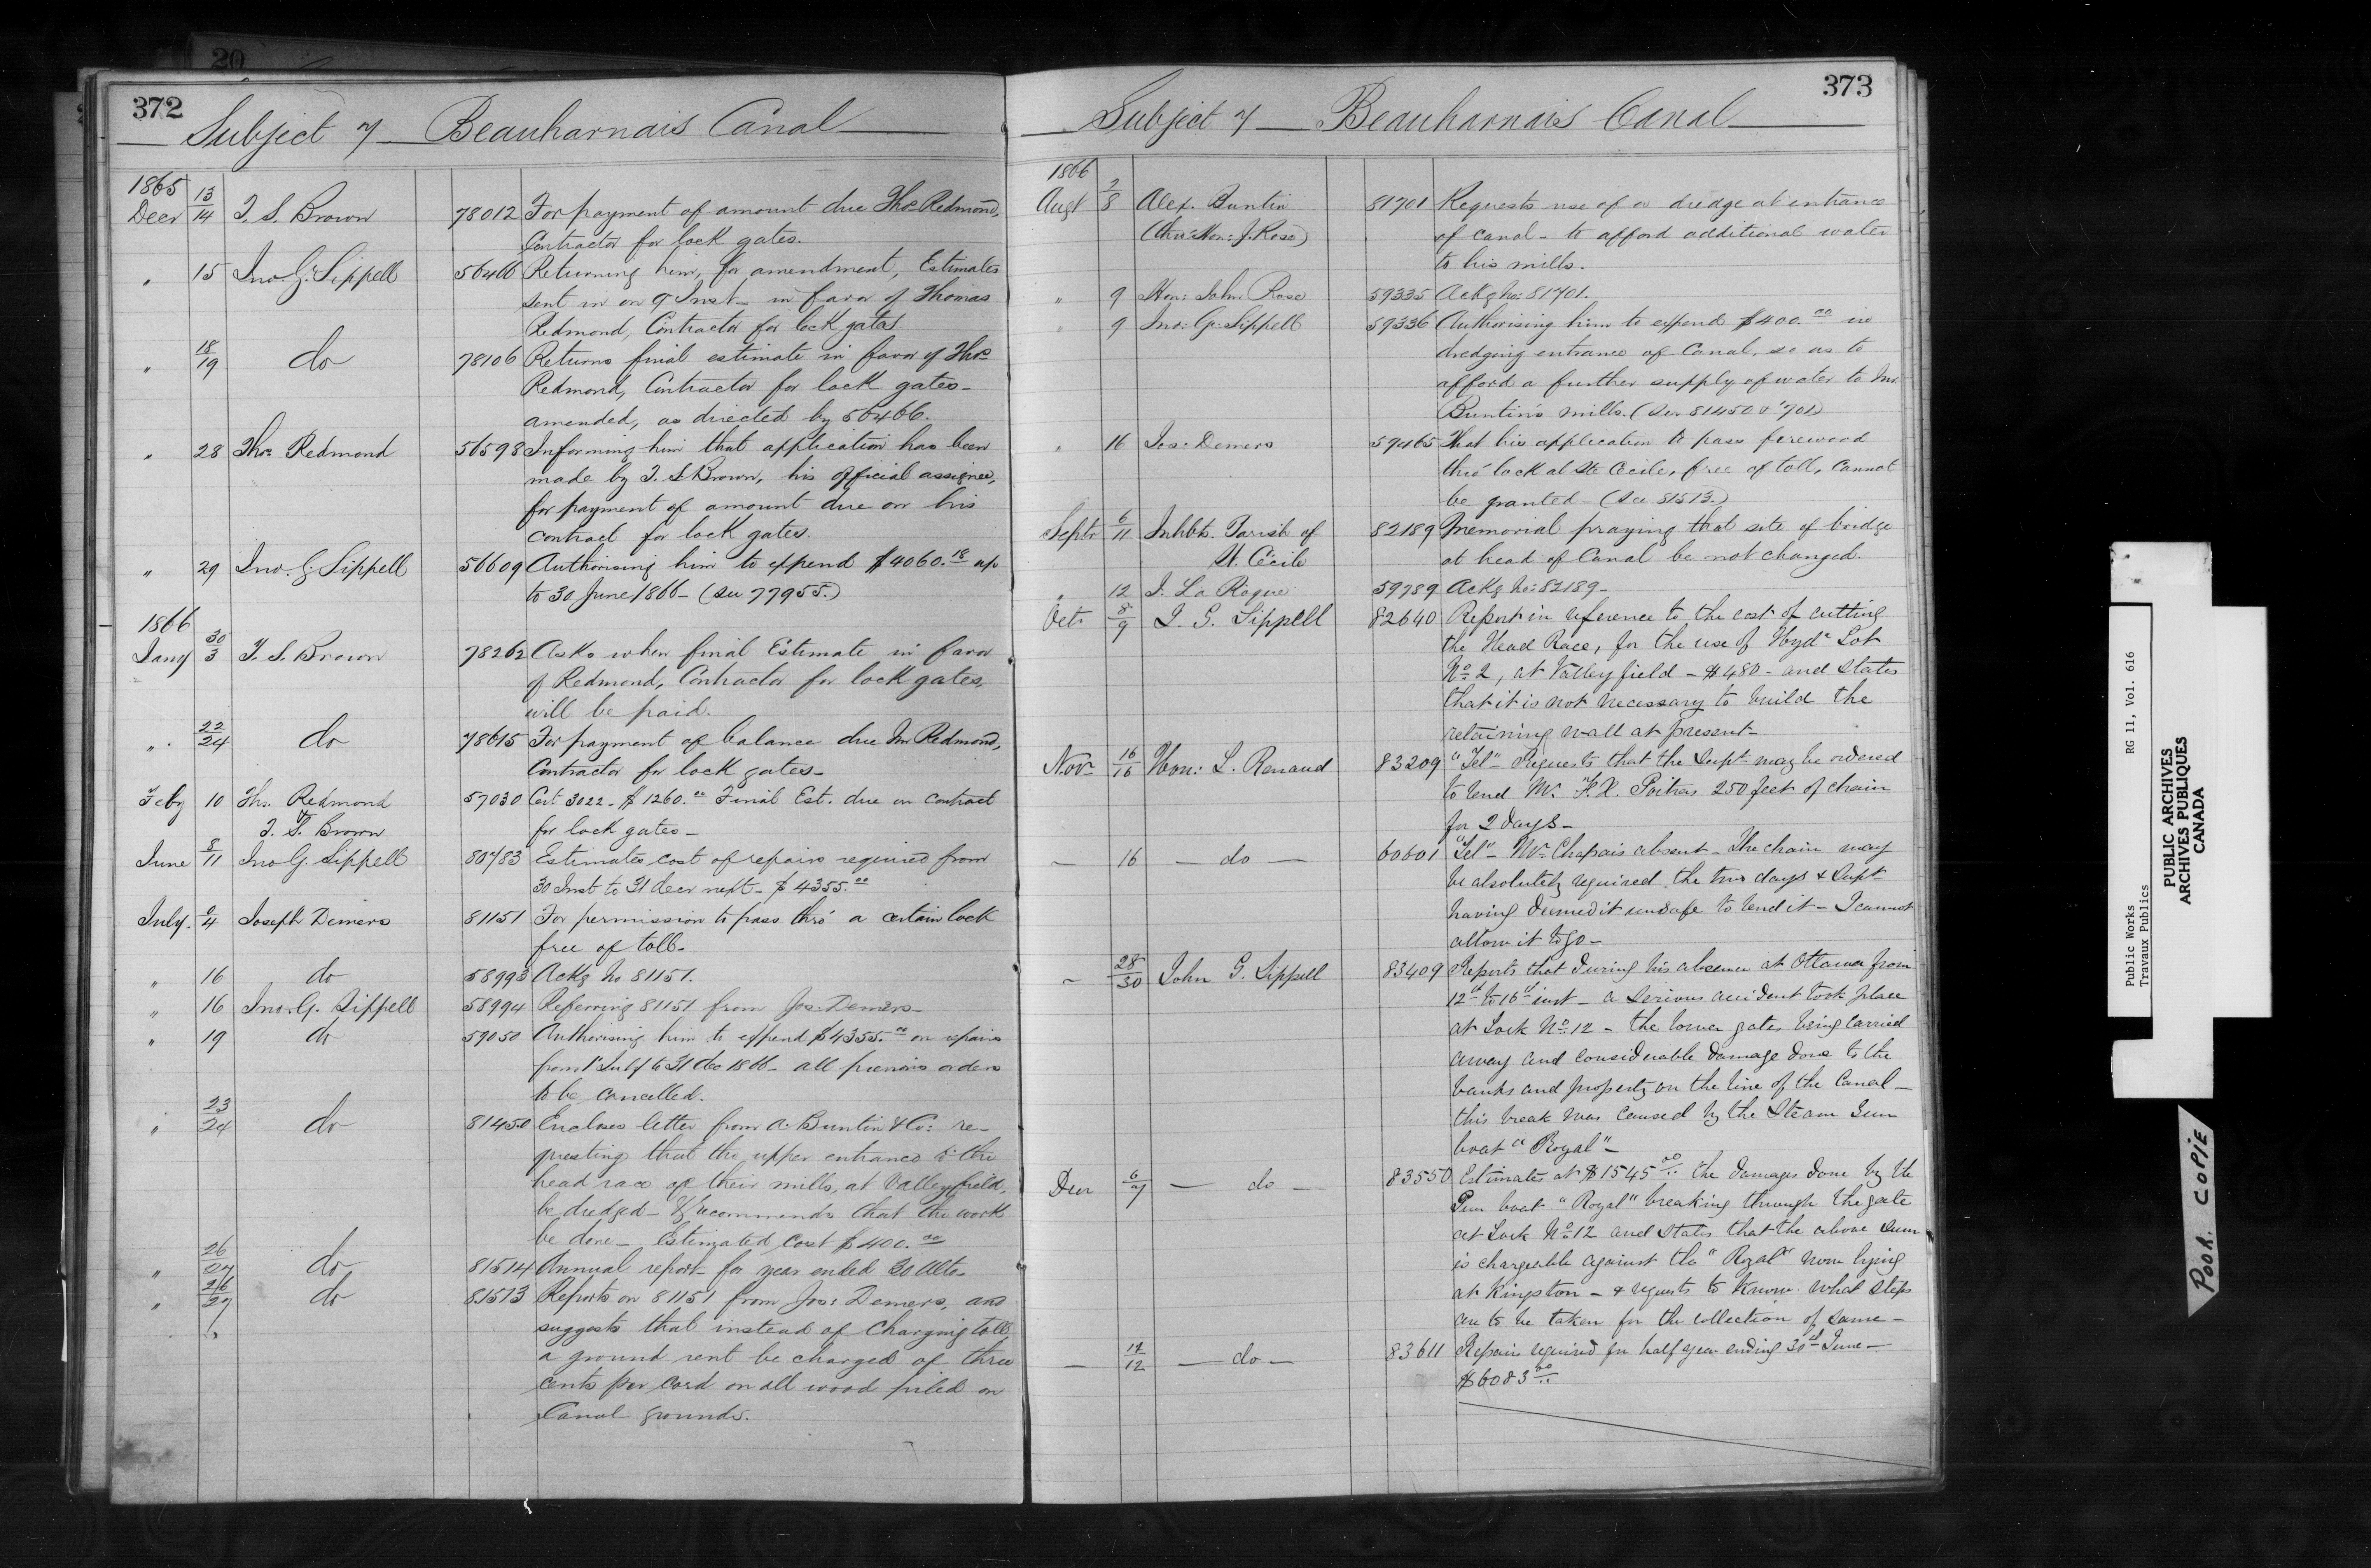 20
372
Subject 7 Beauharnais Canal
1865
Decr 13/14 T. S. Brown 78012 For payment of amount due Thos Redmond,
Contractor for lock gates.
" 15 Jno. G. Sippell 56466 Returning him, for amendment, Estimates
sent in on 9 Inst – in favor of Thomas
Redmond, Contractor for lock gates
" 18/19 do 78106 Returns final estimate in favor of Thos
Redmond, Contractor for lock gates –
amended, as directed by 56466.
" 28 Thos Redmond 56598 Informing him that application has been
made by T. S. Brown, his official assignee,
for payment of amount due on his
contract for lock gates.
" 29 Jno. G. Sippell 56609 Authorising him to expend $4060.18 up
to 30 June 1866 – (see 77955.)
1866
Jany 30/3 T. S. Brown 78262 Asks when final Estimate in favor
of Redmond, Contractor for lock gates,
will be paid.
" 22/24 do 78615 For payment of balance due Mr Redmond,
Contractor for lock gates –
Feby 10 Ths. Redmond 57030 Cert 3022 – $1260.00 Final Est. due on contract
T. S. Brown for lock gates –
June 8/11 Jno G. Sippell 80783 Estimates cost of repairs required from
30 Inst to 31 decr next – $4355.00
July /4 Joseph Demers 81151 For permission to pass thro' a certain lock
free of toll –
" 16 do 58993 Ackg No 81151.
" 16 Jno. G. Sippell 58994 Referring 81151 from Jos. Demers –
" 19 do 59050 Authorising him to expend $4355.00 on repairs
from 1st July to 31 dec 1866 – all previous orders
to be cancelled.
" 23/24 do 81450 Encloses letter from A. Buntin & Co: re-
questing that the upper entrance to the
head race of their mills, at Valleyfield,
be dredged – & recommends that the work
be done – Estimated cost $400.00
" 26/27 do 81514 Annual report for year ended 30 Ulto –
" 26/27 do 81513 Reports on 81151 from Jos: Demers, and
suggests that instead of charging toll
a ground rent be charged of three
cents per cord on all wood piled on
Canal grounds.
373
Subject 7 Beauharnais Canal
1866
Augt 7/8 Alex. Buntin 81701 Requests use of a dredge at entrance
(thro' Hon: J. Rose) of canal – to afford additional water
to his mills.
" 9 Hon: John Rose 59335 Ackg No: 81701.
" 9 Jno: G. Sippell 59336 Authorising him to expend $400.00 in
dredging entrance of Canal, so as to
afford a further supply of water to Mr
Buntin's mills. (See 81450 & '701)
" 16 Jos: Demers 59465 That his application to pass firewood
thro' lock at Ste Cecile, free of toll, cannot
be granted – (See 81513.)
Septr 6/11 Inhbts. Parish of 82189 Memorial praying that site of bridge
St. Cécile at head of Canal be not changed.
" 12 J. La Roque 59789 Ackg No: 82189 –
Oct 8/9 J. G. Sippell 82640 Report in reference to the cost of cutting
the Head Race, for the use of Hydc Lot
No 2, at Valleyfield – $480 – and states
that it is not necessary to build the
retaining wall at present –
Novr 16/16 Hon: L. Renaud 83209 "Tel" – Requests that the Supt may be ordered
to lend Mr. F. X. Poitras 250 feet of chain
for 2 days –
— 16 — do — 60601 "Tel" – Mr Chapais absent – The chain may
be absolutely required the two days & Supt
having deemed it unsafe to lend it – I cannot
allow it to go –
" 28/30 John G. Sippell 83409 Reports that during his absence at Ottawa from
12th to 16th inst – a serious accident took place
at Lock No 12 – the lower gates being carried
away and considerable damage done to the
banks and property on the line of the Canal –
this break was caused by the Steam Gun
boat "Royal" –
Decr 6/7 — do — 83550 Estimates at $1545.00 the damages done by the
Gun boat "Royal" breaking through the gate
at Lock No 12 and states that the above sum
is chargeable against the "Royal" now lying
at Kingston – & requests to know what steps
are to be taken for the collection of same –
— 12 — do — 83611 Repairs required for half year ending 30th June –
$6083.00
Public Works RG 11, Vol. 616
Travaux Publics
PUBLIC ARCHIVES
ARCHIVES PUBLIQUES
CANADA
POOR COPIE